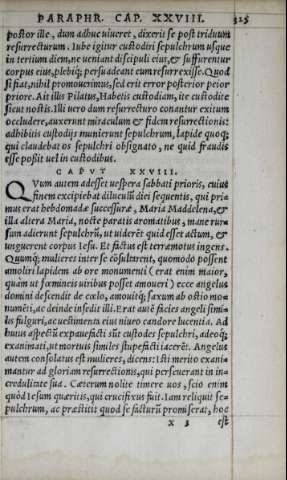 PARAPHR. CAP. XXVIII. 325
postor ille, dum adhuc viueret, dixerit se post triduum
resurrecturum. Iube igitur custodiri sepulchrum usque
in tertium diem, ne ueniant discipuli eius, & suffurentur
corpus eius, plebiq́; persuadeant eum resurrexisse. Quod
si fiat, nihil promouerimus, sed erit error posterior peior
priore. Ait illis Pilatus, Habetis custodiam, ite custodite
sicut nostis. Illi uero dum resurrecturo conantur exitum
occludere, auxerunt miraculum & fidem resurrectionis:
adhibitis custodijs munierunt sepulchrum, lapide quoq;
qui claudebat os sepulchri obsignato, ne quid fraudis
esse possit uel in custodibus.
CAPVT XXVIII.
QVum autem adesset uespera sabbati prioris, cuius
finem excipiebat diluculũ diei sequentis, qui pri-
mus erat hebdomadæ successuræ, Maria Maddelena, &
illa altera Maria, nocte paratis aromatibus, mane rur-
sum adierunt sepulchrũ, ut uiderẽt quid esset actum, &
unguerent corpus Iesu. Et factus est terræmotus ingens.
Quumq́; mulieres inter se cõsultarent, quomodo possent
amoliri lapidem ab ore monumenti (erat enim maior,
quàm ut fœmineis uiribus posset amoueri) ecce angelus
domini descendit de cœlo, amouitq́; saxum ab ostio mo-
numẽti, ac deinde insedit illi. Erat autẽ facies angeli simi-
lis fulguri, ac uestimenta eius niueo candore lucentia. Ad
huius aspectũ expauefacti sũt custodes sepulchri, adeoq́;
exanimati, ut mortuis similes stupefacti iacerẽt. Angelus
autem consolatus est mulieres, dicens: Isti merito exani-
mantur ad gloriam resurrectionis, qui perseuerant in in-
credulitate sua. Cæterum nolite timere uos, scio enim
quòd Iesum quæritis, qui crucifixus fuit. Iam reliquit se-
pulchrum, ac præstitit quod se facturũ promiserat, hoc
x 3 est